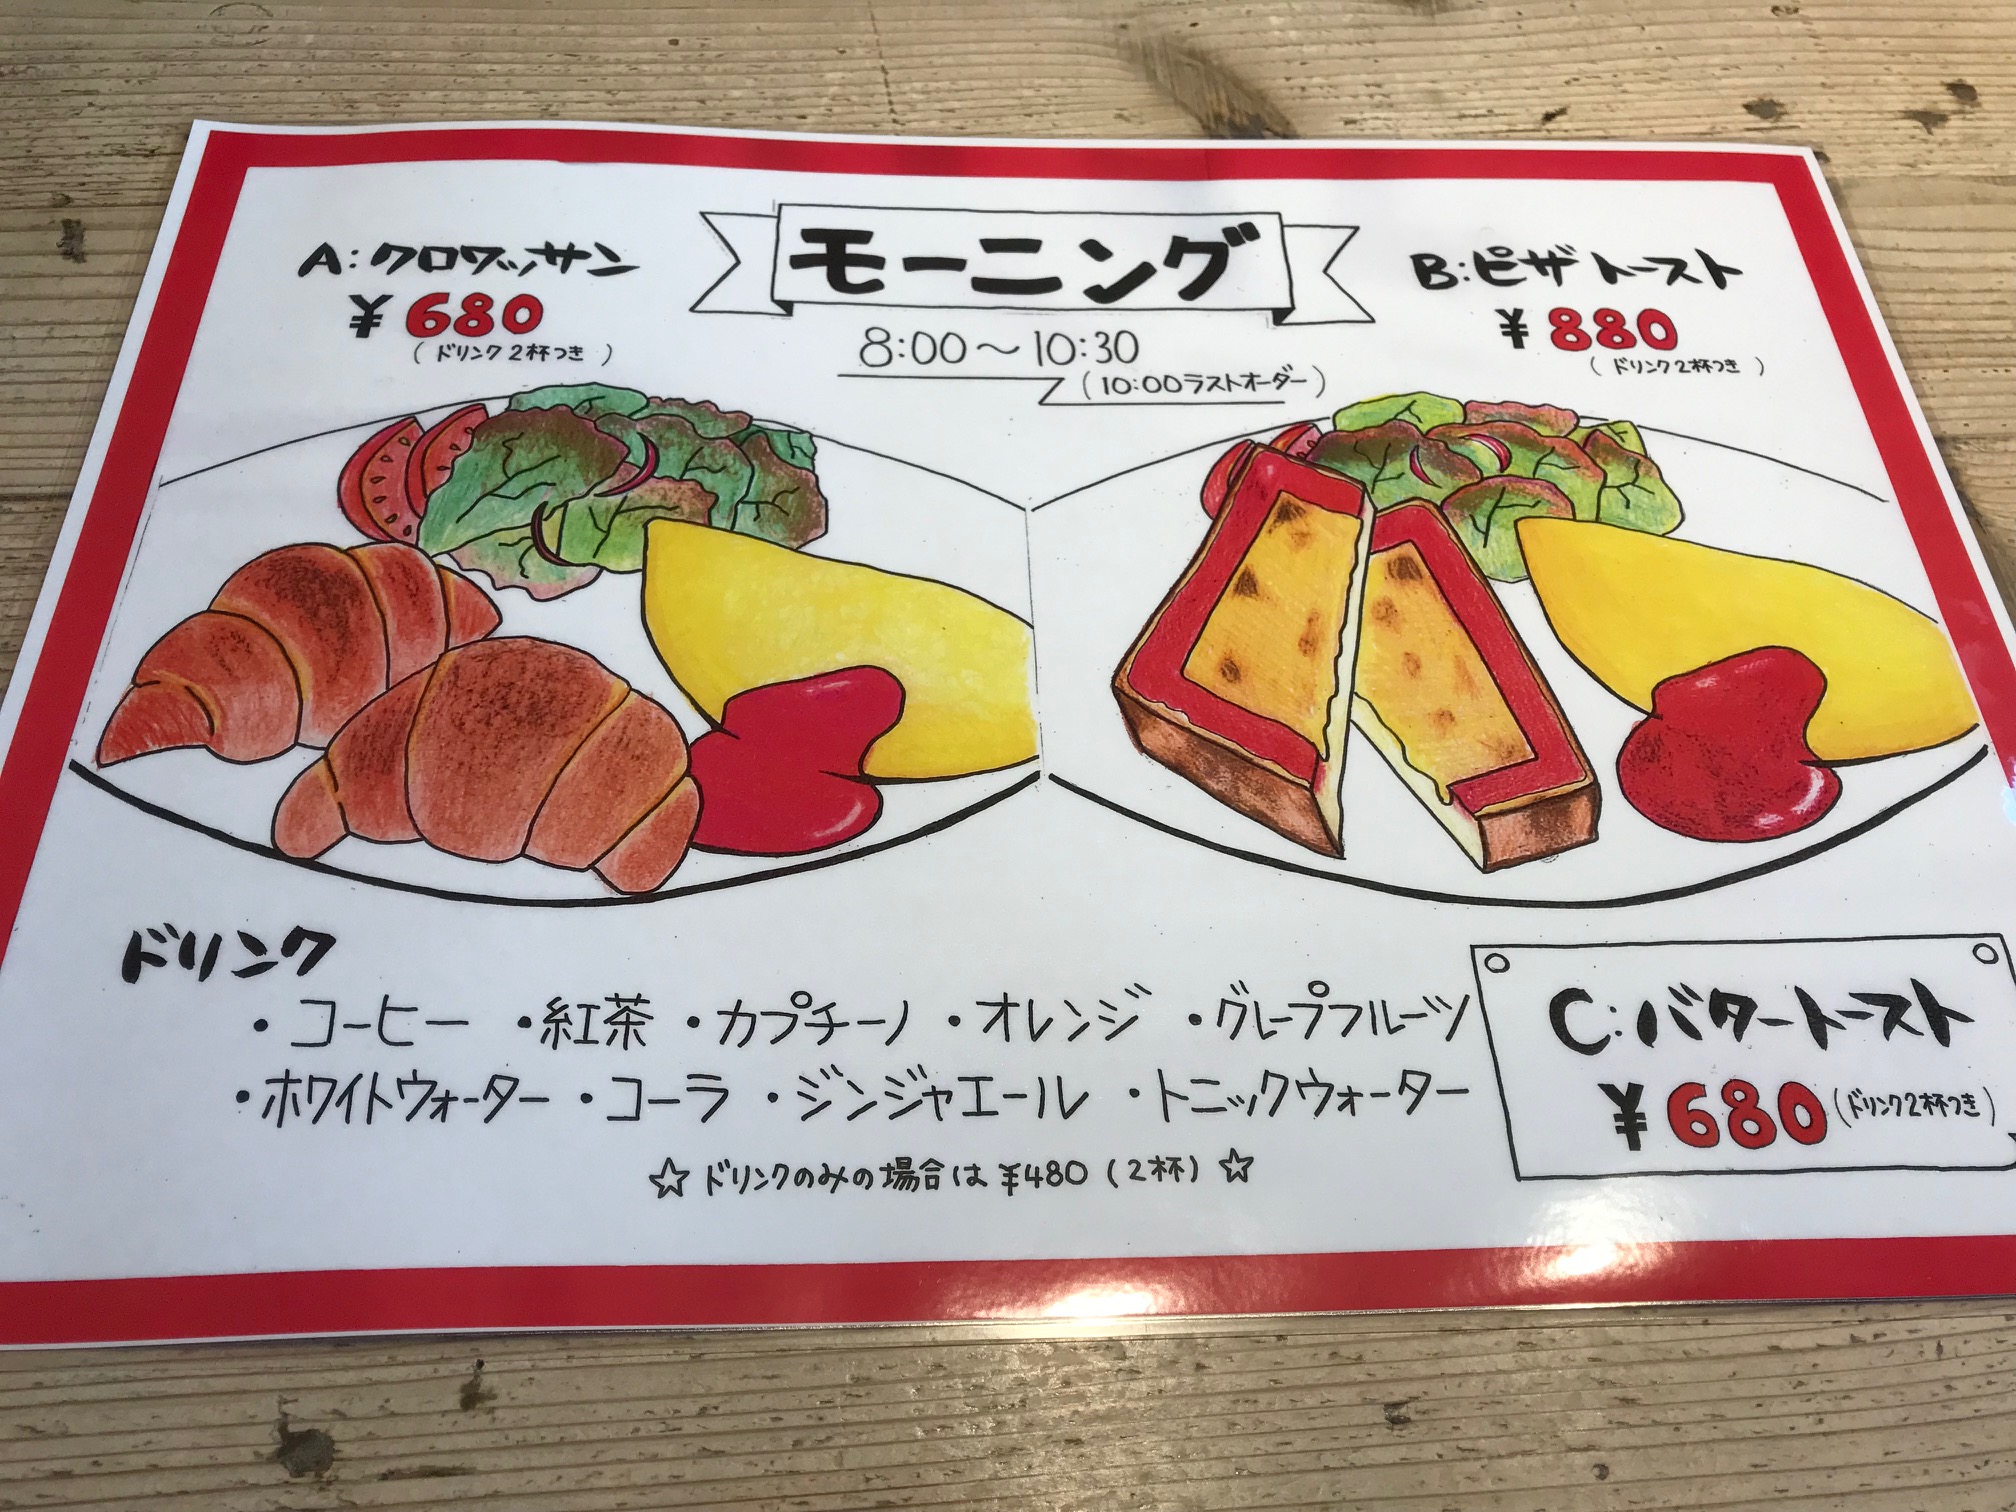 モーニング
8:00〜10:30
(10:00ラストオーダー)
A:クロワッサン
¥680
(ドリンク2杯つき)
B:ピザトースト
¥880
(ドリンク2杯つき)
ドリンク
・コーヒー ・紅茶 ・カプチーノ ・オレンジ ・グレープフルーツ
・ホワイトウォーター ・コーラ ・ジンジャエール ・トニックウォーター
☆ドリンクのみの場合は¥480(2杯)☆
C:バタートースト
¥680(ドリンク2杯つき)